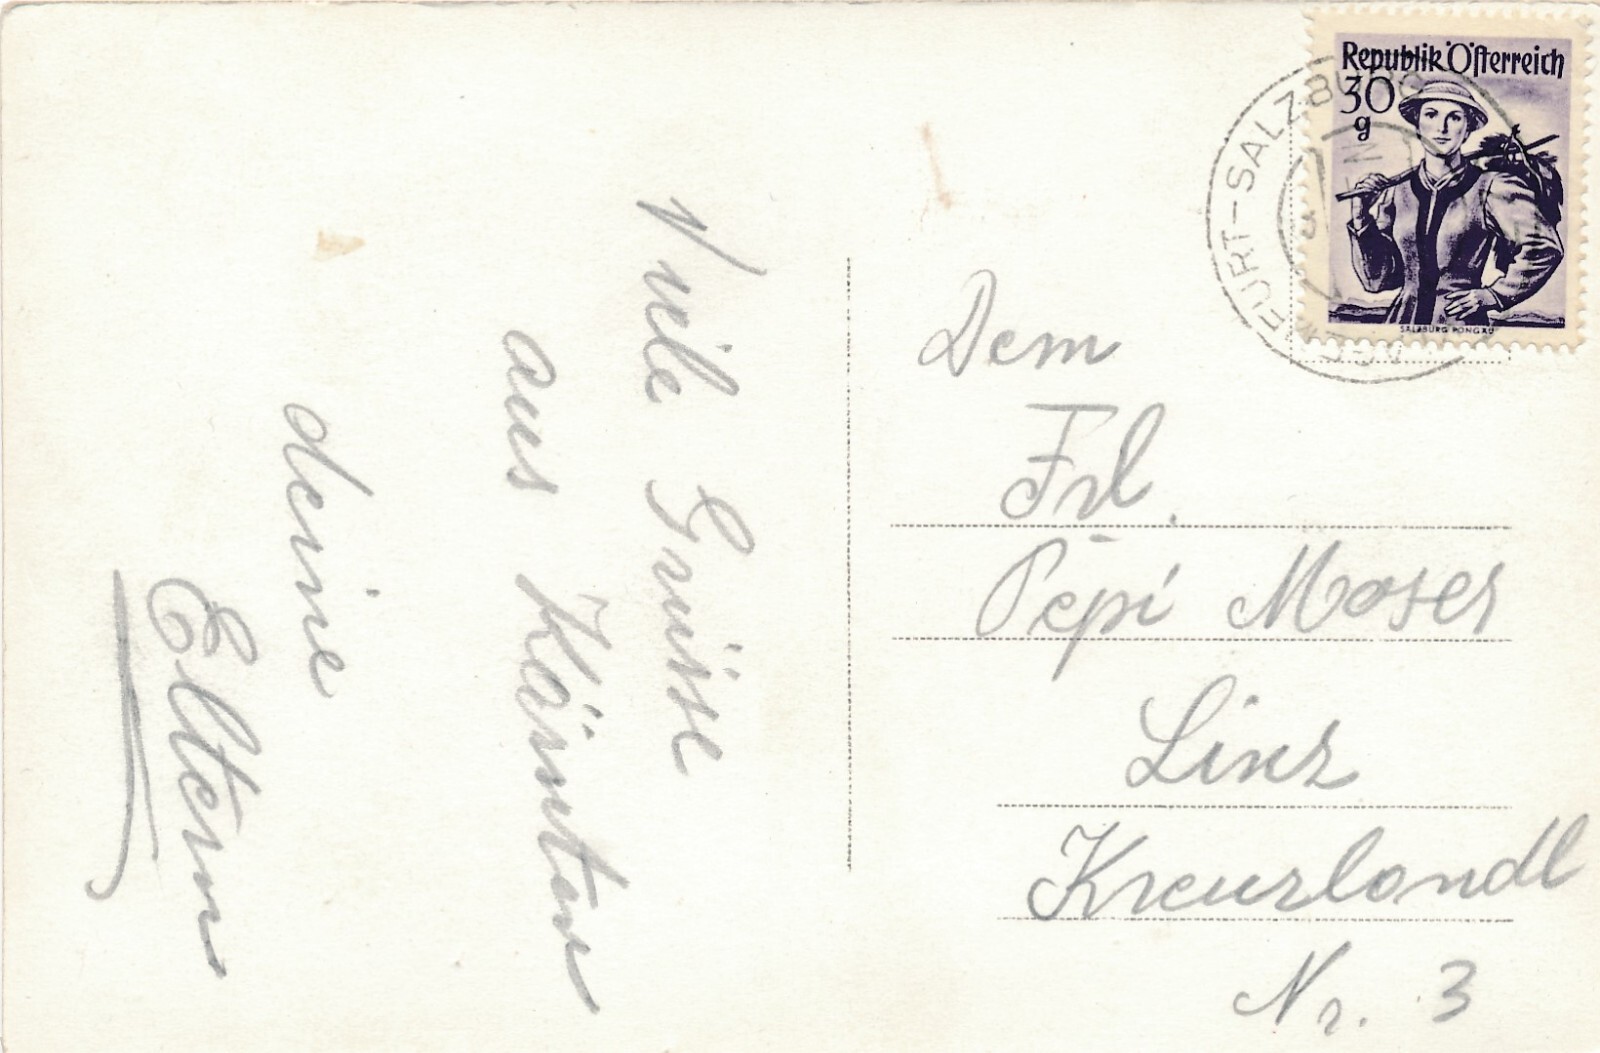 Viele Grüsse
aus Kärnten
deine
Eltern
Republik Österreich
30
g
SALZBURG PONGAU
KLAGENFURT-SALZBURG
Dem
Frl.
Pepi Moser
Linz
Kreuzlandl
Nr. 3